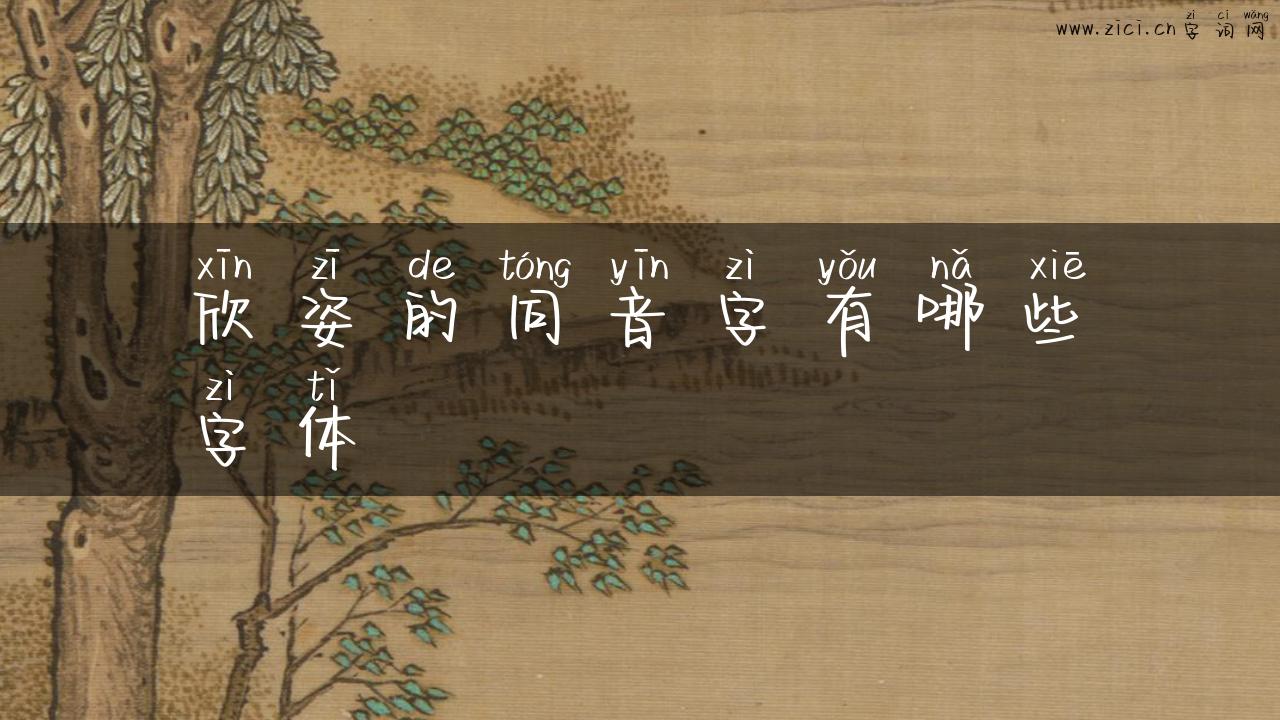 zì cí wǎng
www.zici.cn 字词网
xīn zī de tóng yīn zì yǒu nǎ xiē
欣姿的同音字有哪些
zì tǐ
字体